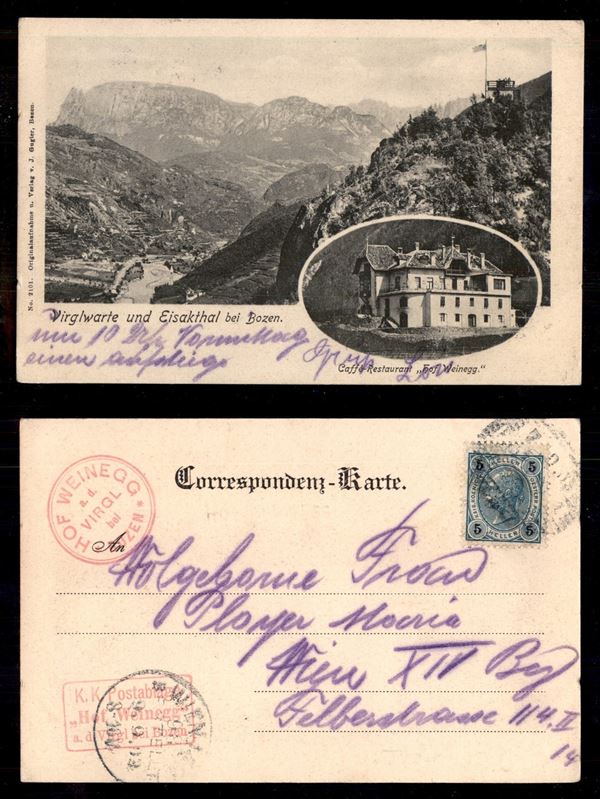 No. 2101. Originalaufnahme u. Verlag v. J. Gugler, Bozen.
Virglwarte und Eisakthal bei Bozen.
Caffé-Restaurant „Hof Weinegg."
um 10 Uhr Vormittag
einen aufstieg
Correspondenz-Karte.
HOF WEINEGG
a. d.
VIRGL
bei
BOZEN
5 5
HELLER
5 5
An
Wolgeborne Frau
Player Maria
Wien XIV Bez
Felberstrasse 114. II
14
K. K. Postablage
„Hof Weinegg"
a. d. Virgl bei Bozen
WIEN